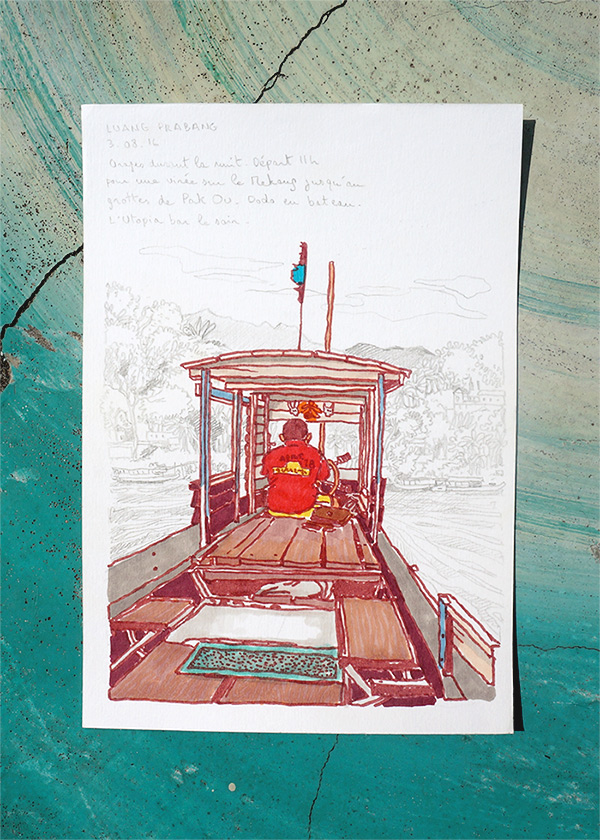 LUANG PRABANG
3.08.16
Orages durant la nuit. Départ 11h
pour une virée sur le Mekong jusqu'au
grottes de Pak Ou. Dodo en bateau.
L'Utopia bar le soir.